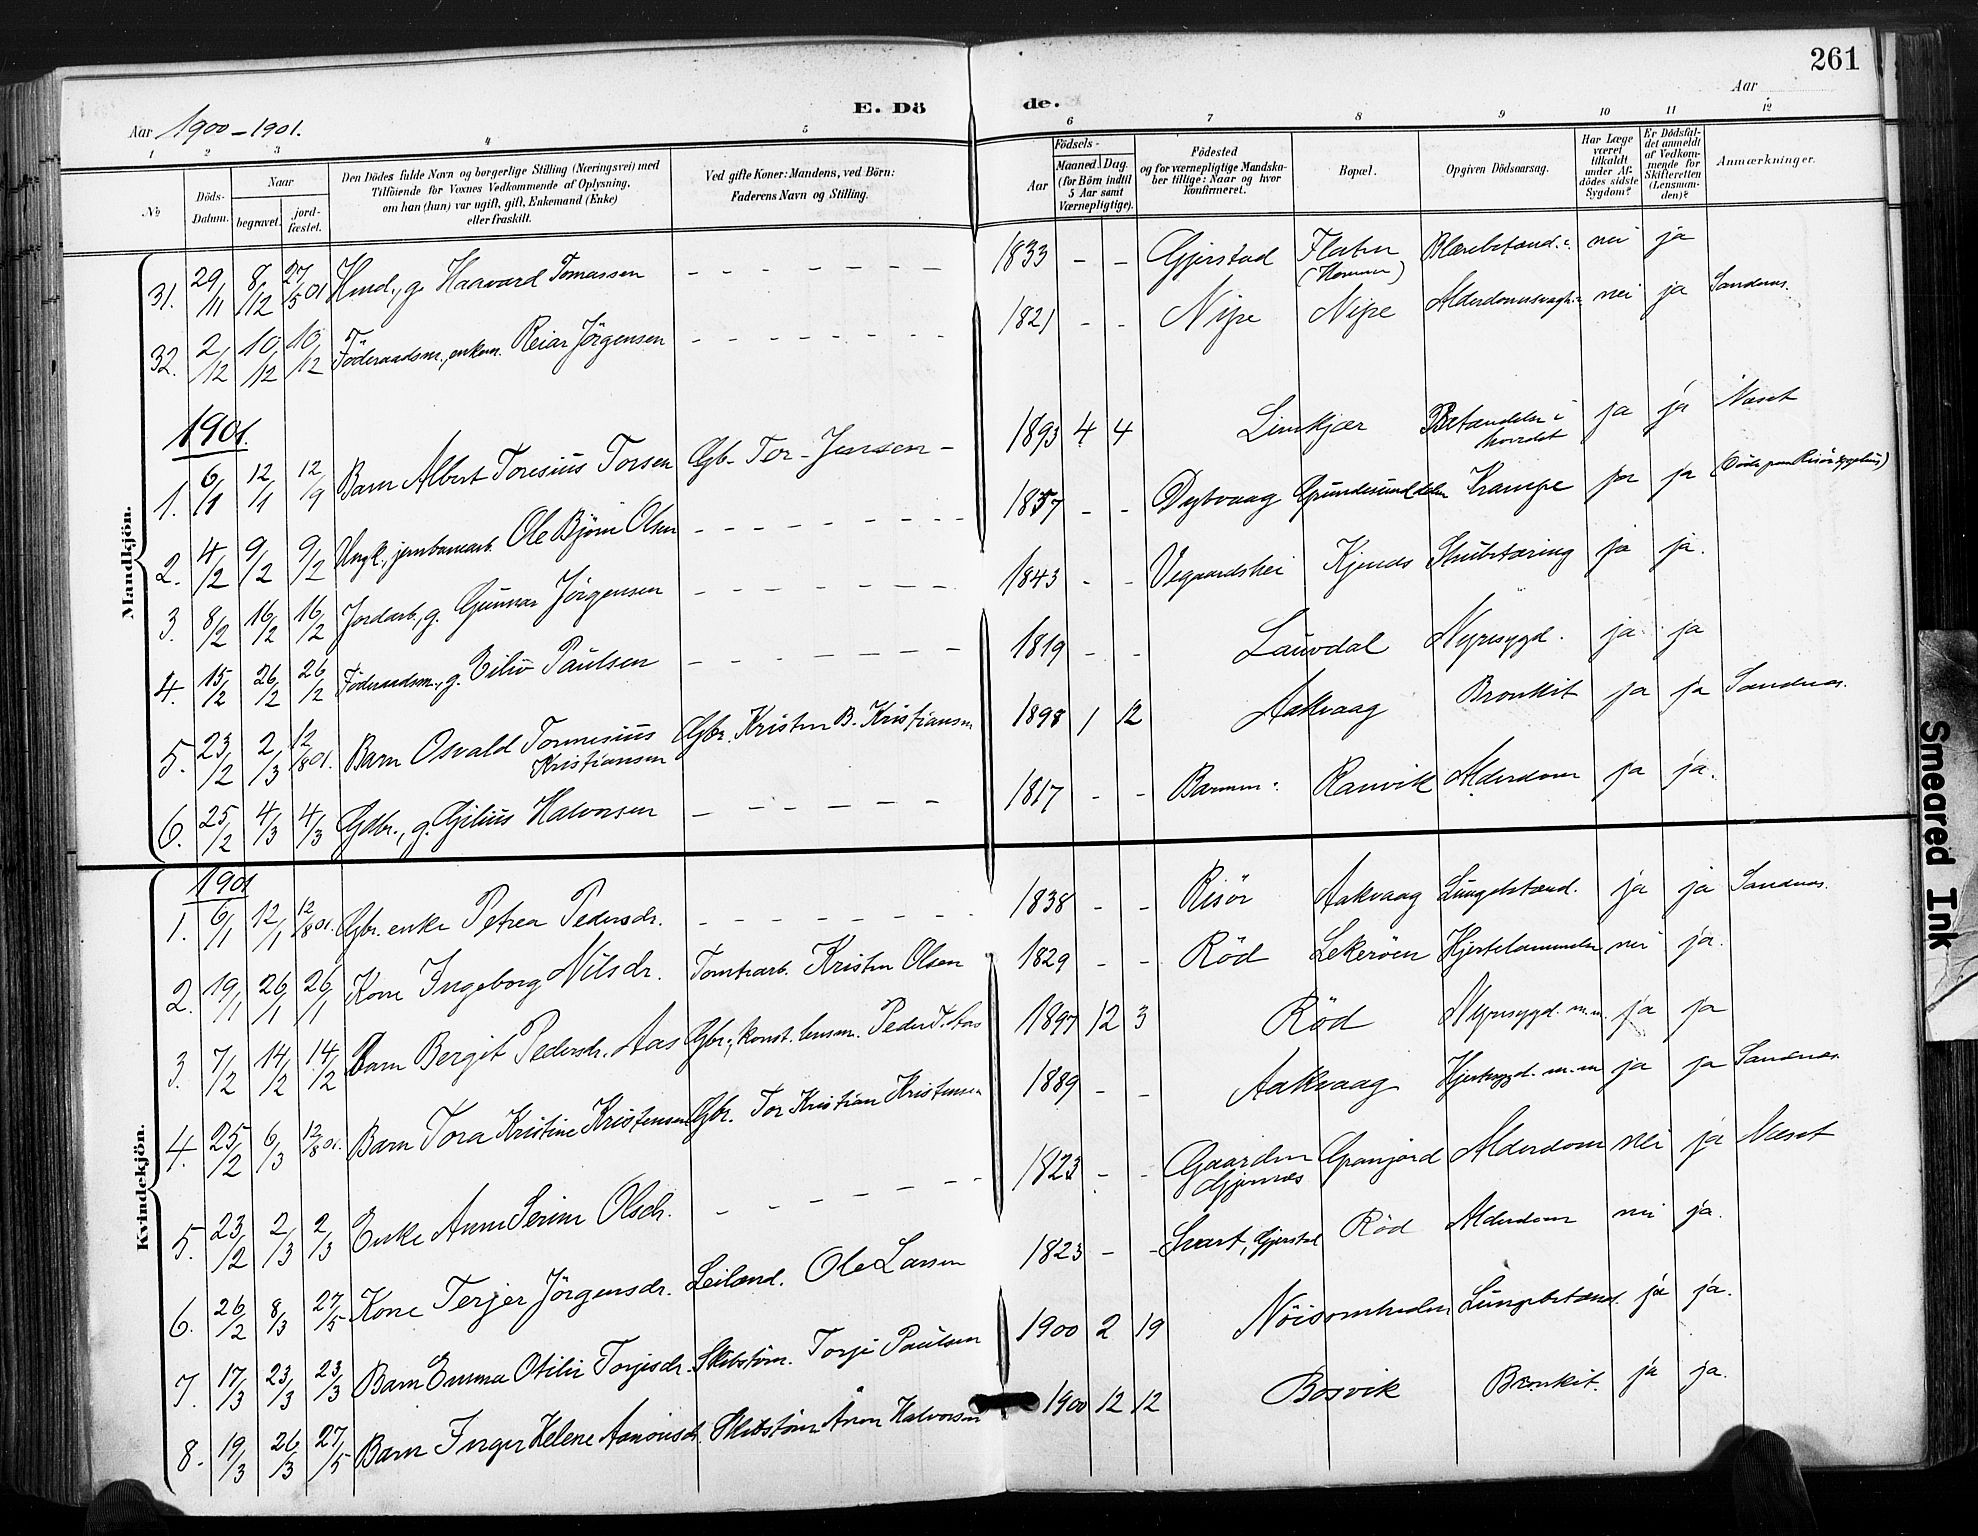 261
E. Döde.
Aar 1900-1901.
Aar
1 2 3 4 5 6 7 8 9 10 11 12
No
Döds-Datum.
Naar
begravet.
jord-fæstet.
Den Dödes fulde Navn og borgerlige Stilling (Næringsvei) med
Tilföiende for Voxnes Vedkommende af Oplysning,
om han (hun) var ugift, gift, Enkemand (Enke)
eller fraskilt.
Ved gifte Koner: Mandens, ved Börn:
Faderens Navn og Stilling.
Födsels-
Aar
Maaned. Dag.
(for Börn indtil
5 Aar samt
Værnepligtige).
Födested
og for værnepligtige Mandska-
ber tillige: Naar og hvor
konfirmeret.
Bopæl.
Opgiven Dödsaarsag.
Har Læge
været
tilkaldt
under Af-
dödes sidste
Sygdom?
Er Dödsfal-
det anmeldt
af Vedkom-
mende for
Skifteretten
(Lensman-
den)?
Anmærkninger.
Mandkjön.
31. 29/11 8/12 27/5 01 g. Haavard Tomassen - - - - - - - 1833 - - Gjerstad nei ja
32. 2/12 10/12 10/12 Föderaadsm., enkem. Reiar Jörgensen - - - - - - - 1821 - - Nipe Nipe nei ja Sandnes.
1901.
1. 6/1 12/1 12/9 Barn Albert Toresius Torsen Gb. Tor Jensen - 1893 4 4 Limkjær Betændelse i hovedet ja ja Næset
2. 4/2 9/2 9/2 Ungk., jernbanearb. Ole Björn Olsen - - - - - - - 1857 - - Dybvaag Krampe ja ja
3. 8/2 16/2 16/2 Jordarb., g. Gunnar Jörgensen - - - - - - - 1843 - - Vegaardshei Strubetæring ja ja.
4. 15/2 26/2 26/2 Föderaadsm., g. Eiliv Paulsen - - - - - - - 1819 - - Lauvdal Nyresygd. ja ja
5. 23/2 2/3 12/8 01. Barn Osvald Tonnesius Kristiansen Gbr. Kristen B. Kristiansen 1898 1 12 Aakvaag Bronkit ja ja Sandnes.
6. 25/2 4/3 4/3 Gdbr., g. Gjelius Halvorsen - - - - - - 1817 - - Ranvik Alderdom ja ja.
Kvindekjön.
1901
1. 6/1 12/1 12/8 01. Gbr. enke Petrea Pedersdr. - - - - - - - 1838 - - Risör Aakvaag Lungebetænd. ja ja Sandnes.
2. 19/1 26/1 26/1 Kone Ingeborg Nilsdr. Tomtearb. Kristen Olsen 1829 - - Röd Lekeröen Hjertelammelse nei ja.
3. 7/2 14/2 14/2 Barn Bergit Pedersdr. Aas Gbr., konst. lensm. Peder T. Aas 1897 12 3 Röd Nyresygd. m.m. ja ja
4. 25/2 6/3 12/8 01. Barn Tora Kristine Kristensen Gbr. Tor Kristian Kristensen 1889 - - Aakvaag Hjertesygd. m.m ja ja Sandnes.
5. 23/2 2/3 2/3 Enke Anne Serine Olsdr. - - - - - - 1823 - - Gaarden Gjernes Granfjord Alderdom nei ja Næset
6. 26/2 8/3 27/5 Kone Terjer Jörgensdr. Leilænd. Ole Larsen 1823 - - Svart, Gjerstad Röd Alderdom nei ja.
7. 17/3 23/3 23/3 Barn Emma Otilie Torjesdr. Skibstöm. Torje Paulsen 1900 2 19 Nöisomheden Lungebetænd. ja ja.
8. 19/3 26/3 27/5 Barn Inger Helene Aanonsdr. Skibstöm. Anon Halvorsen 1900 12 12 Bosvik Bronkit. ja ja.
Smeared Ink